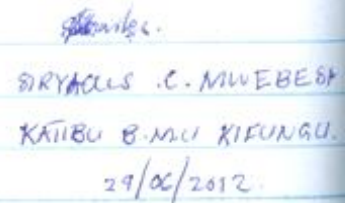 SIRYACUS .C. MWEBESA
KATIBU B.MU KIFUNGU.
29/06/2012.